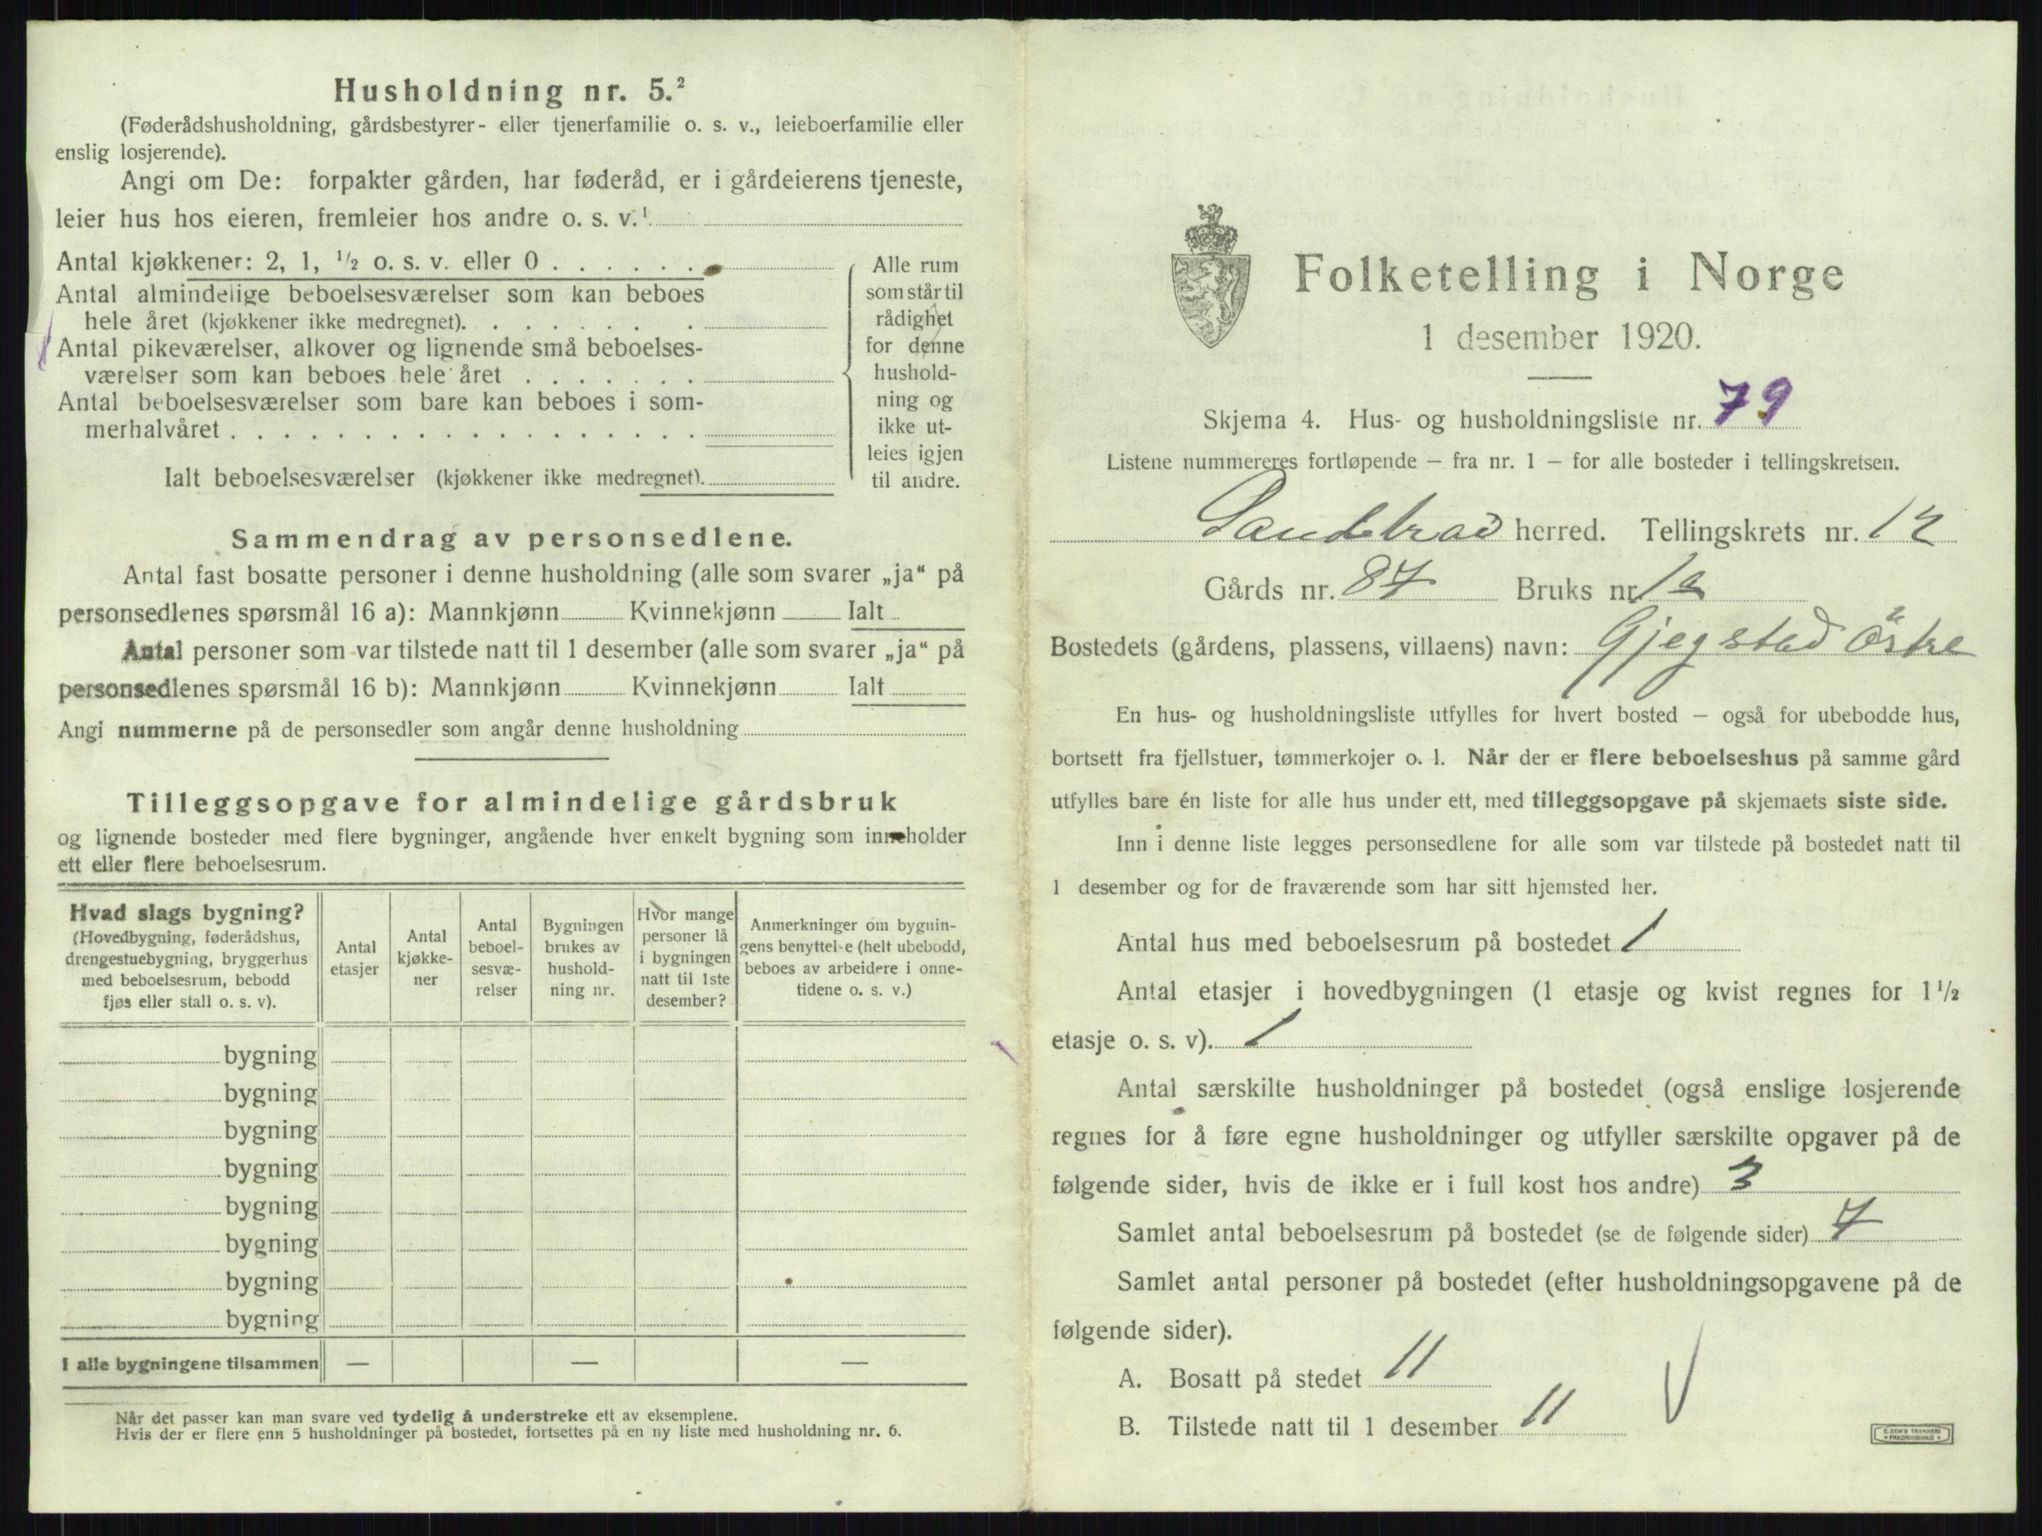 Husholdning nr. 5.²
(Føderådshusholdning, gårdsbestyrer- eller tjenerfamilie o. s. v., leieboerfamilie eller
enslig losjerende).
Angi om De: forpakter gården, har føderåd, er i gårdeierens tjeneste,
leier hus hos eieren, fremleier hos andre o. s. v.¹
Antal kjøkkener: 2, 1, ½ o. s. v. eller 0 . . . . . .
Antal almindelige beboelsesværelser som kan beboes
hele året (kjøkkener ikke medregnet). . . . . . . .
Antal pikeværelser, alkover og lignende små beboelses-
værelser som kan beboes hele året . . . . . . .
Antal beboelsesværelser som bare kan beboes i som-
merhalvåret . . . . . . . . . . . . . . . . . .
Ialt beboelsesværelser (kjøkkener ikke medregnet).
Alle rum
som står til
rådighet
for denne
hushold-
ning og
ikke ut-
leies igjen
til andre.
Sammendrag av personsedlene.
Antal fast bosatte personer i denne husholdning (alle som svarer „ja“ på
personsedlenes spørsmål 16 a): Mannkjønn Kvinnekjønn Ialt
Antal personer som var tilstede natt til 1 desember (alle som svarer „ja“ på
personsedlenes spørsmål 16 b): Mannkjønn Kvinnekjønn Ialt
Angi nummerne på de personsedler som angår denne husholdning
Tilleggsopgave for almindelige gårdsbruk
og lignende bosteder med flere bygninger, angående hver enkelt bygning som inneholder
ett eller flere beboelsesrum.
Hvad slags bygning?
(Hovedbygning, føderådshus,
drengestuebygning, bryggerhus
med beboelsesrum, bebodd
fjøs eller stall o. s. v).
Antal
etasjer
Antal
kjøkke-
ner
Antal
beboel-
sesvæ-
relser
Bygningen
brukes av
hushold-
ning nr.
Hvor mange
personer lå
i bygningen
natt til 1ste
desember?
Anmerkninger om bygnin-
gens benyttelse (helt ubebodd,
beboes av arbeidere i onne-
tidene o. s. v.)
bygning
bygning
bygning
bygning
bygning
bygning
bygning
bygning
I alle bygningene tilsammen — — —
Når det passer kan man svare ved tydelig å understreke ett av eksemplene.
Hvis der er flere enn 5 husholdninger på bostedet, fortsettes på en ny liste med husholdning nr. 6.
Folketelling i Norge
1 desember 1920.
Skjema 4. Hus- og husholdningsliste nr. 79
Listene nummereres fortløpende – fra nr. 1 – for alle bosteder i tellingskretsen.
Sandebrad herred. Tellingskrets nr. 12
Gårds nr. 87 Bruks nr. 12
Bostedets (gårdens, plassens, villaens) navn: Gjegstad Östre
En hus- og husholdningsliste utfylles for hvert bosted – også for ubebodde hus,
bortsett fra fjellstuer, tømmerkojer o. l. Når der er flere beboelseshus på samme gård
utfylles bare én liste for alle hus under ett, med tilleggsopgave på skjemaets siste side.
Inn i denne liste legges personsedlene for alle som var tilstede på bostedet natt til
1 desember og for de fraværende som har sitt hjemsted her.
Antal hus med beboelsesrum på bostedet 1
Antal etasjer i hovedbygningen (1 etasje og kvist regnes for 1½
etasje o. s. v). 1
Antal særskilte husholdninger på bostedet (også enslige losjerende
regnes for å føre egne husholdninger og utfyller særskilte opgaver på de
følgende sider, hvis de ikke er i full kost hos andre) 3
Samlet antal beboelsesrum på bostedet (se de følgende sider) 7
Samlet antal personer på bostedet (efter husholdningsopgavene på de
følgende sider).
A. Bosatt på stedet 11
B. Tilstede natt til 1 desember 11